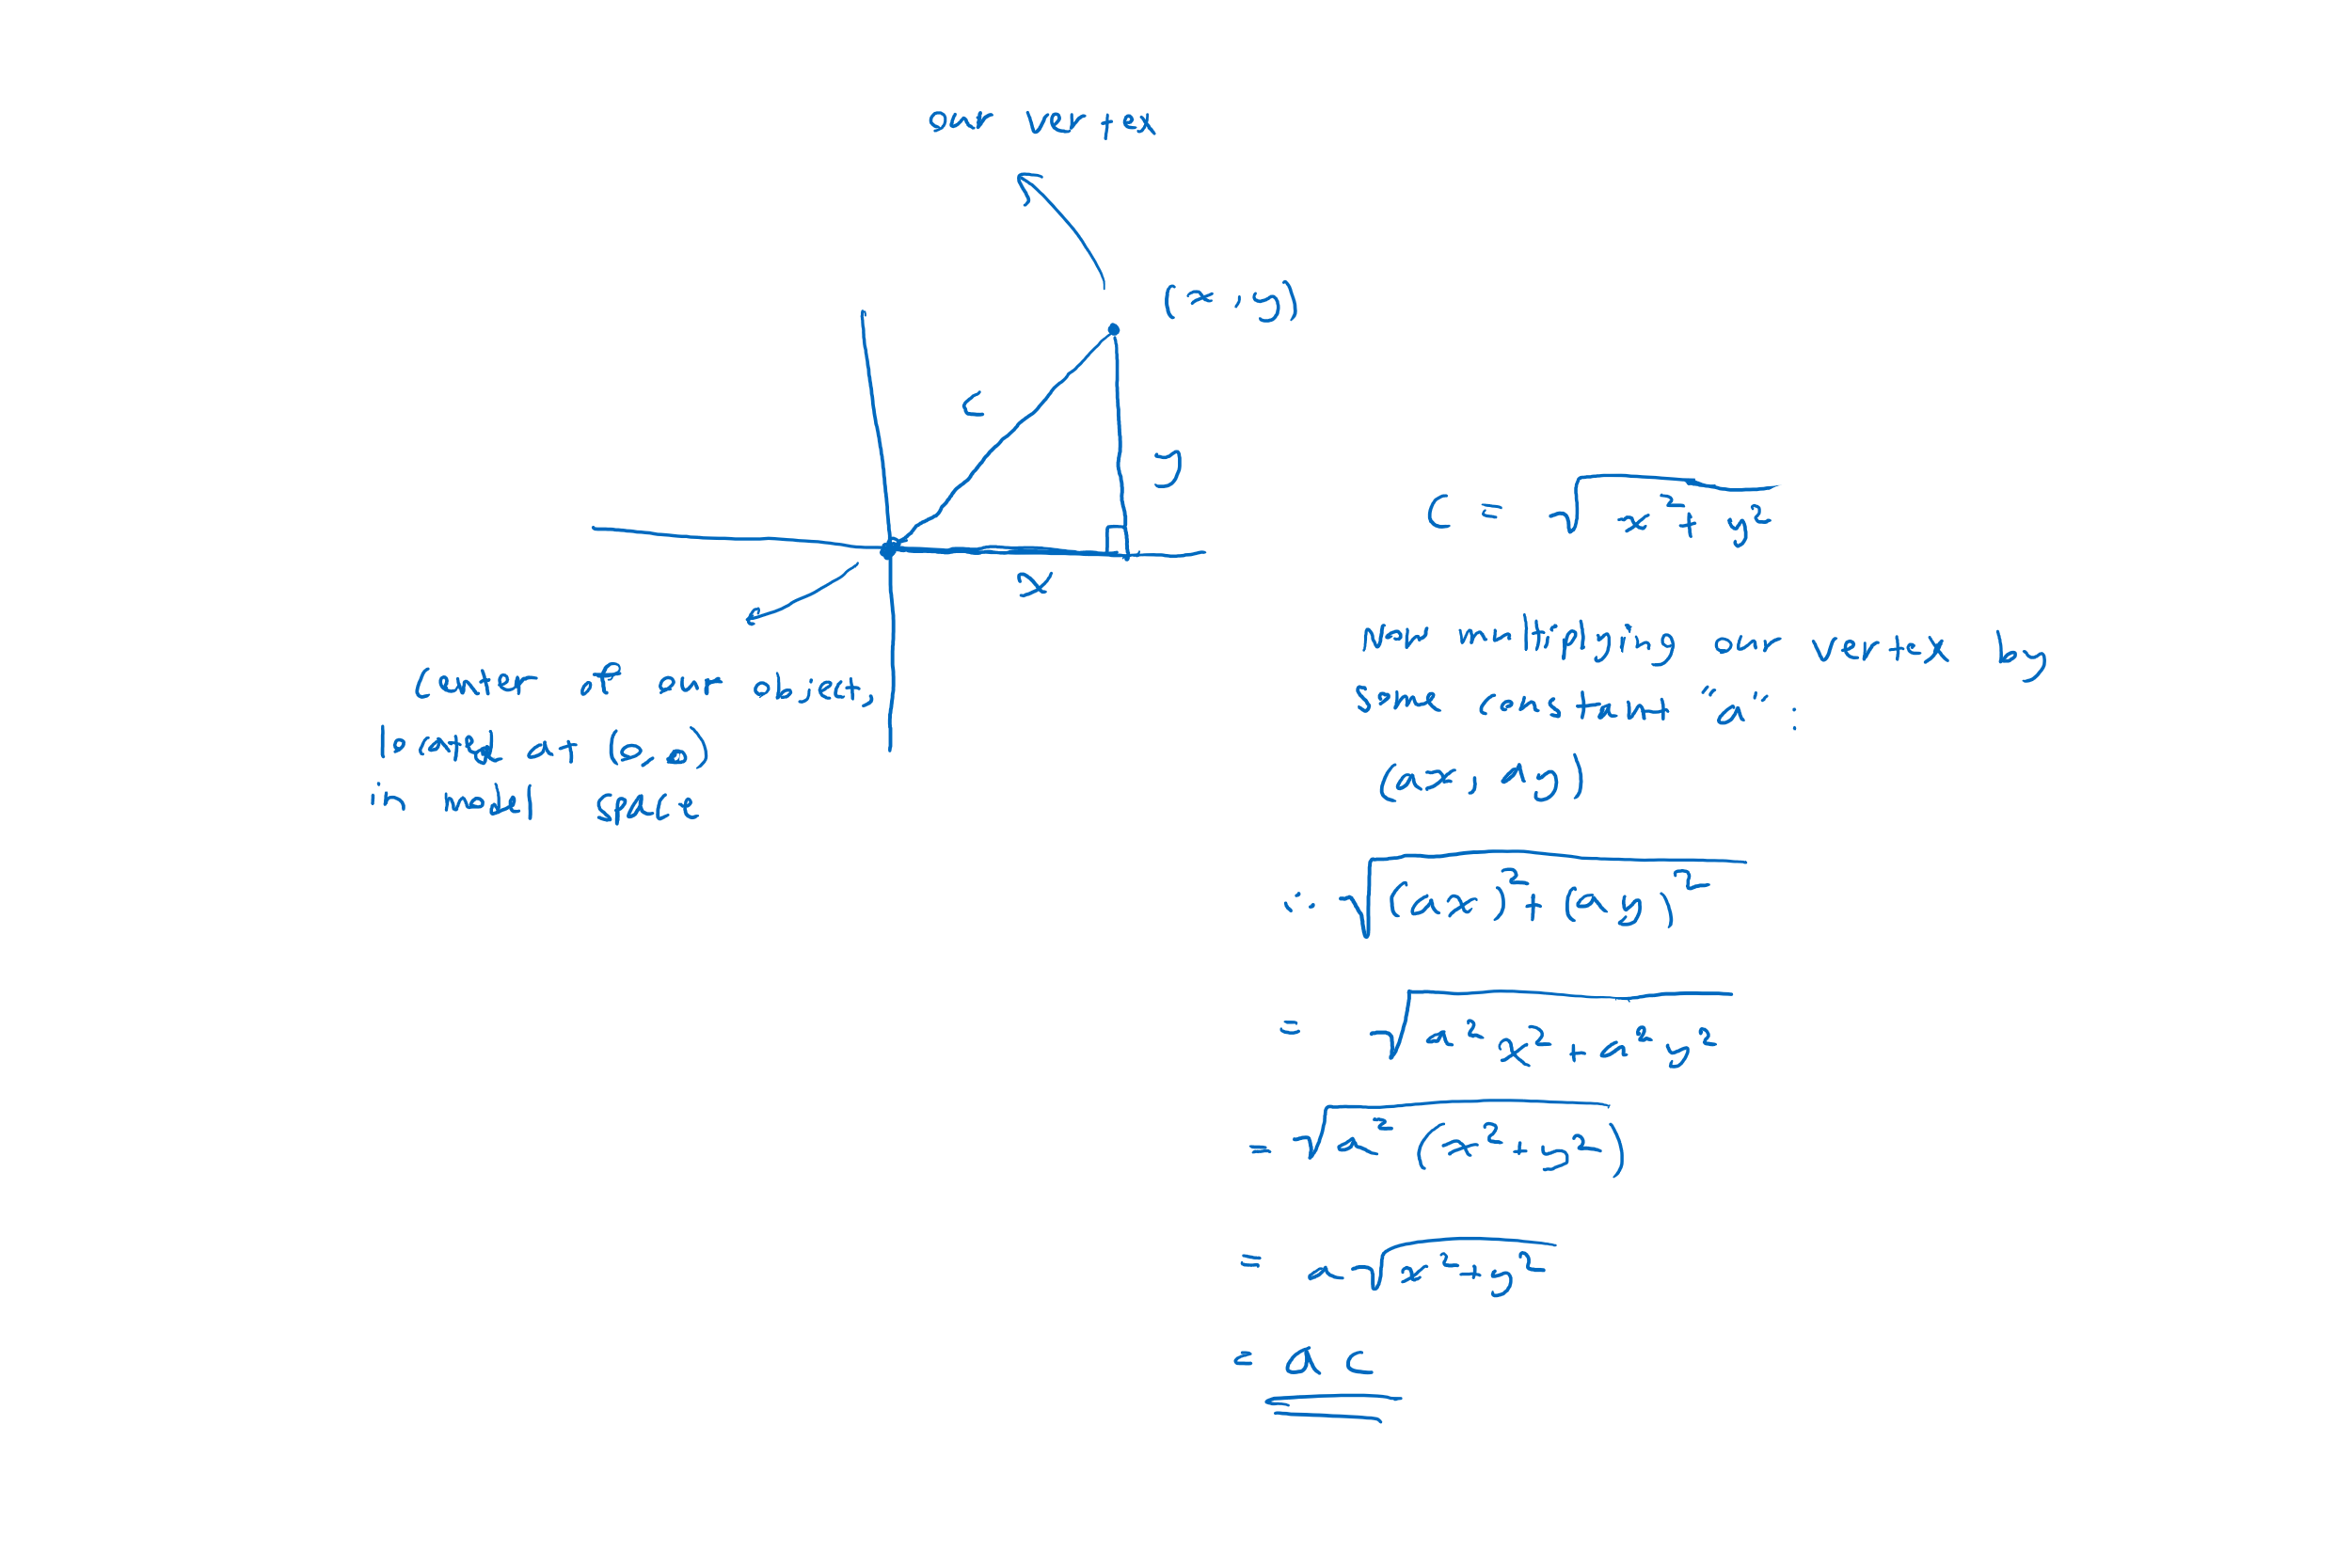 our vertex
(x, y)
c
y
x
center of our object,
located at (0, 0)
in model space
c = √(x² + y²)
now multipping our vertex by
some constant "a":
(ax, ay)
∴ √((ax)² + (ay)²)
= √(a² x² + a² y²)
= √(a² (x² + y²))
= a √(x² + y²)
= a c